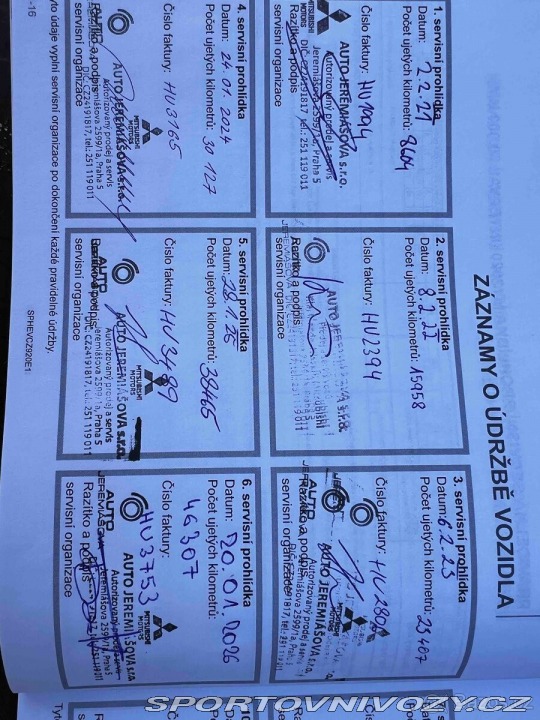 ZÁZNAMY O ÚDRŽBĚ VOZIDLA
1. servisní prohlídka
Datum: 2.2.21
Počet ujetých kilometrů: 8604
Číslo faktury: HU1994
MITSUBISHI MOTORS
AUTO JEREMIÁŠOVA s.r.o.
Autorizovaný prodej a servis
Jeremiášova 2599/1a, Praha 5
DIČ: CZ24191817, tel.: 251 119 011
Razítko a podpis
servisní organizace
2. servisní prohlídka
Datum: 8.2.22
Počet ujetých kilometrů: 15958
Číslo faktury: HU2394
Razítko a podpis
servisní organizace
3. servisní prohlídka
Datum: 6.2.23
Počet ujetých kilometrů: 23407
Číslo faktury:
AUTO JEREMIÁŠOVA s.r.o.
Autorizovaný prodej a servis
Razítko a podpis
servisní organizace
4. servisní prohlídka
Datum: 24.01.2024
Počet ujetých kilometrů: 30 127
Číslo faktury: HU3165
MITSUBISHI MOTORS
AUTO JEREMIÁŠOVA s.r.o.
Autorizovaný prodej a servis
Jeremiášova 2599/1a, Praha 5
DIČ: CZ24191817, tel.: 251 119 011
Razítko a podpis
servisní organizace
5. servisní prohlídka
Datum: 28.1.25
Počet ujetých kilometrů: 38465
Číslo faktury: HU3489
MITSUBISHI MOTORS
AUTO JEREMIÁŠOVA s.r.o.
Autorizovaný prodej a servis
Jeremiášova 2599/1a, Praha 5
DIČ: CZ24191817, tel.: 251 119 011
Razítko a podpis
servisní organizace
6. servisní prohlídka
Datum: 20.01.2026
Počet ujetých kilometrů:
46307
Číslo faktury:
HU3753
MITSUBISHI MOTORS
AUTO JEREMIÁŠOVA s.r.o.
Autorizovaný prodej a servis
Jeremiášova 2599/1a, Praha 5
Razítko a podpis
servisní organizace
yto údaje vyplní servisní organizace po dokončení každé pravidelné údržby.
-16
SPHEVCZ920E1
SPORTOVNIVOZY.CZ